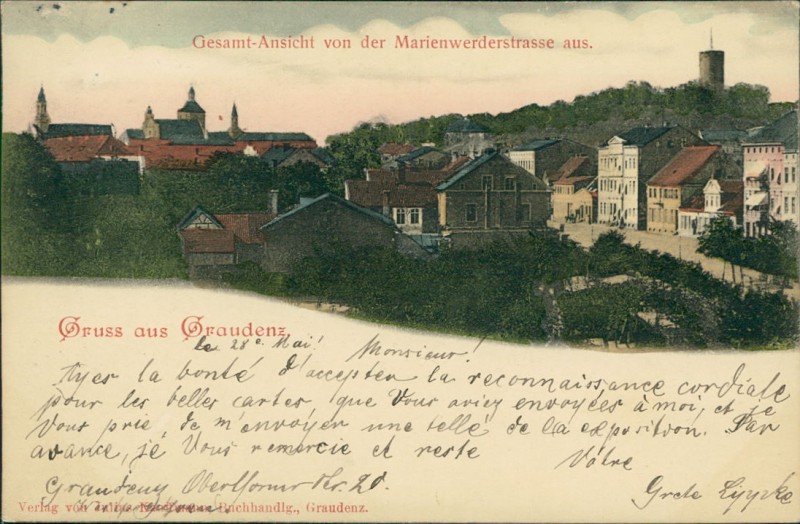 Gesamt-Ansicht von der Marienwerderstrasse aus.
Gruss aus Graudenz
le 28e Mai!
Monsieur!
Ayes la bonté d'accepter la reconnaissance cordiale
pour les belles cartes, que Vous aviez envoyées à moi, et je
Vous prie, de m'envoyer une telle de la exposition. Par
avance, je Vous remercie et reste
Vôtre
Graudenz 
Grete
Verlag von Buchhandlg., Graudenz.